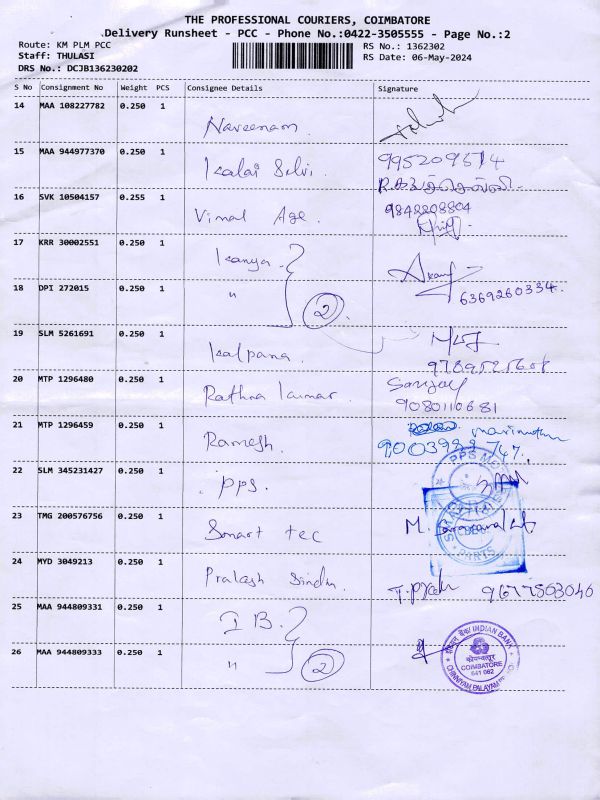 THE PROFESSIONAL COURIERS, COIMBATORE
Delivery Runsheet - PCC - Phone No.:0422-3505555 - Page No.:2
Route: KM PLM PCC RS No.: 1362302
Staff: THULASI RS Date: 06-May-2024
DRS No.: DCJB136230202
S No Consignment No Weight PCS Consignee Details Signature
14 MAA 108227782 0.250 1
Naveenam
15 MAA 944977370 0.250 1
Kalai Selvi 9952096714
16 SVK 10504157 0.255 1
Vimal Age. 9842208804
17 KRR 30002551 0.250 1
Kanya
18 DPI 272015 0.250 1
" 2 6369260334.
19 SLM 5261691 0.250 1
Kalpana.
20 MTP 1296480 0.250 1
Rathna kumar. Sanjay
9080110681
21 MTP 1296459 0.250 1
Ramesh. 9003988747.
22 SLM 345231427 0.250 1
PPS.
23 TMG 200576756 0.250 1
Smart tec M.
24 MYD 3049213 0.250 1
Prakash 9677863046
25 MAA 944809331 0.250 1
I B.
26 MAA 944809333 0.250 1
" 2
INDIAN BANK
COIMBATORE
641 062
CHINNIYAM PALAYAM